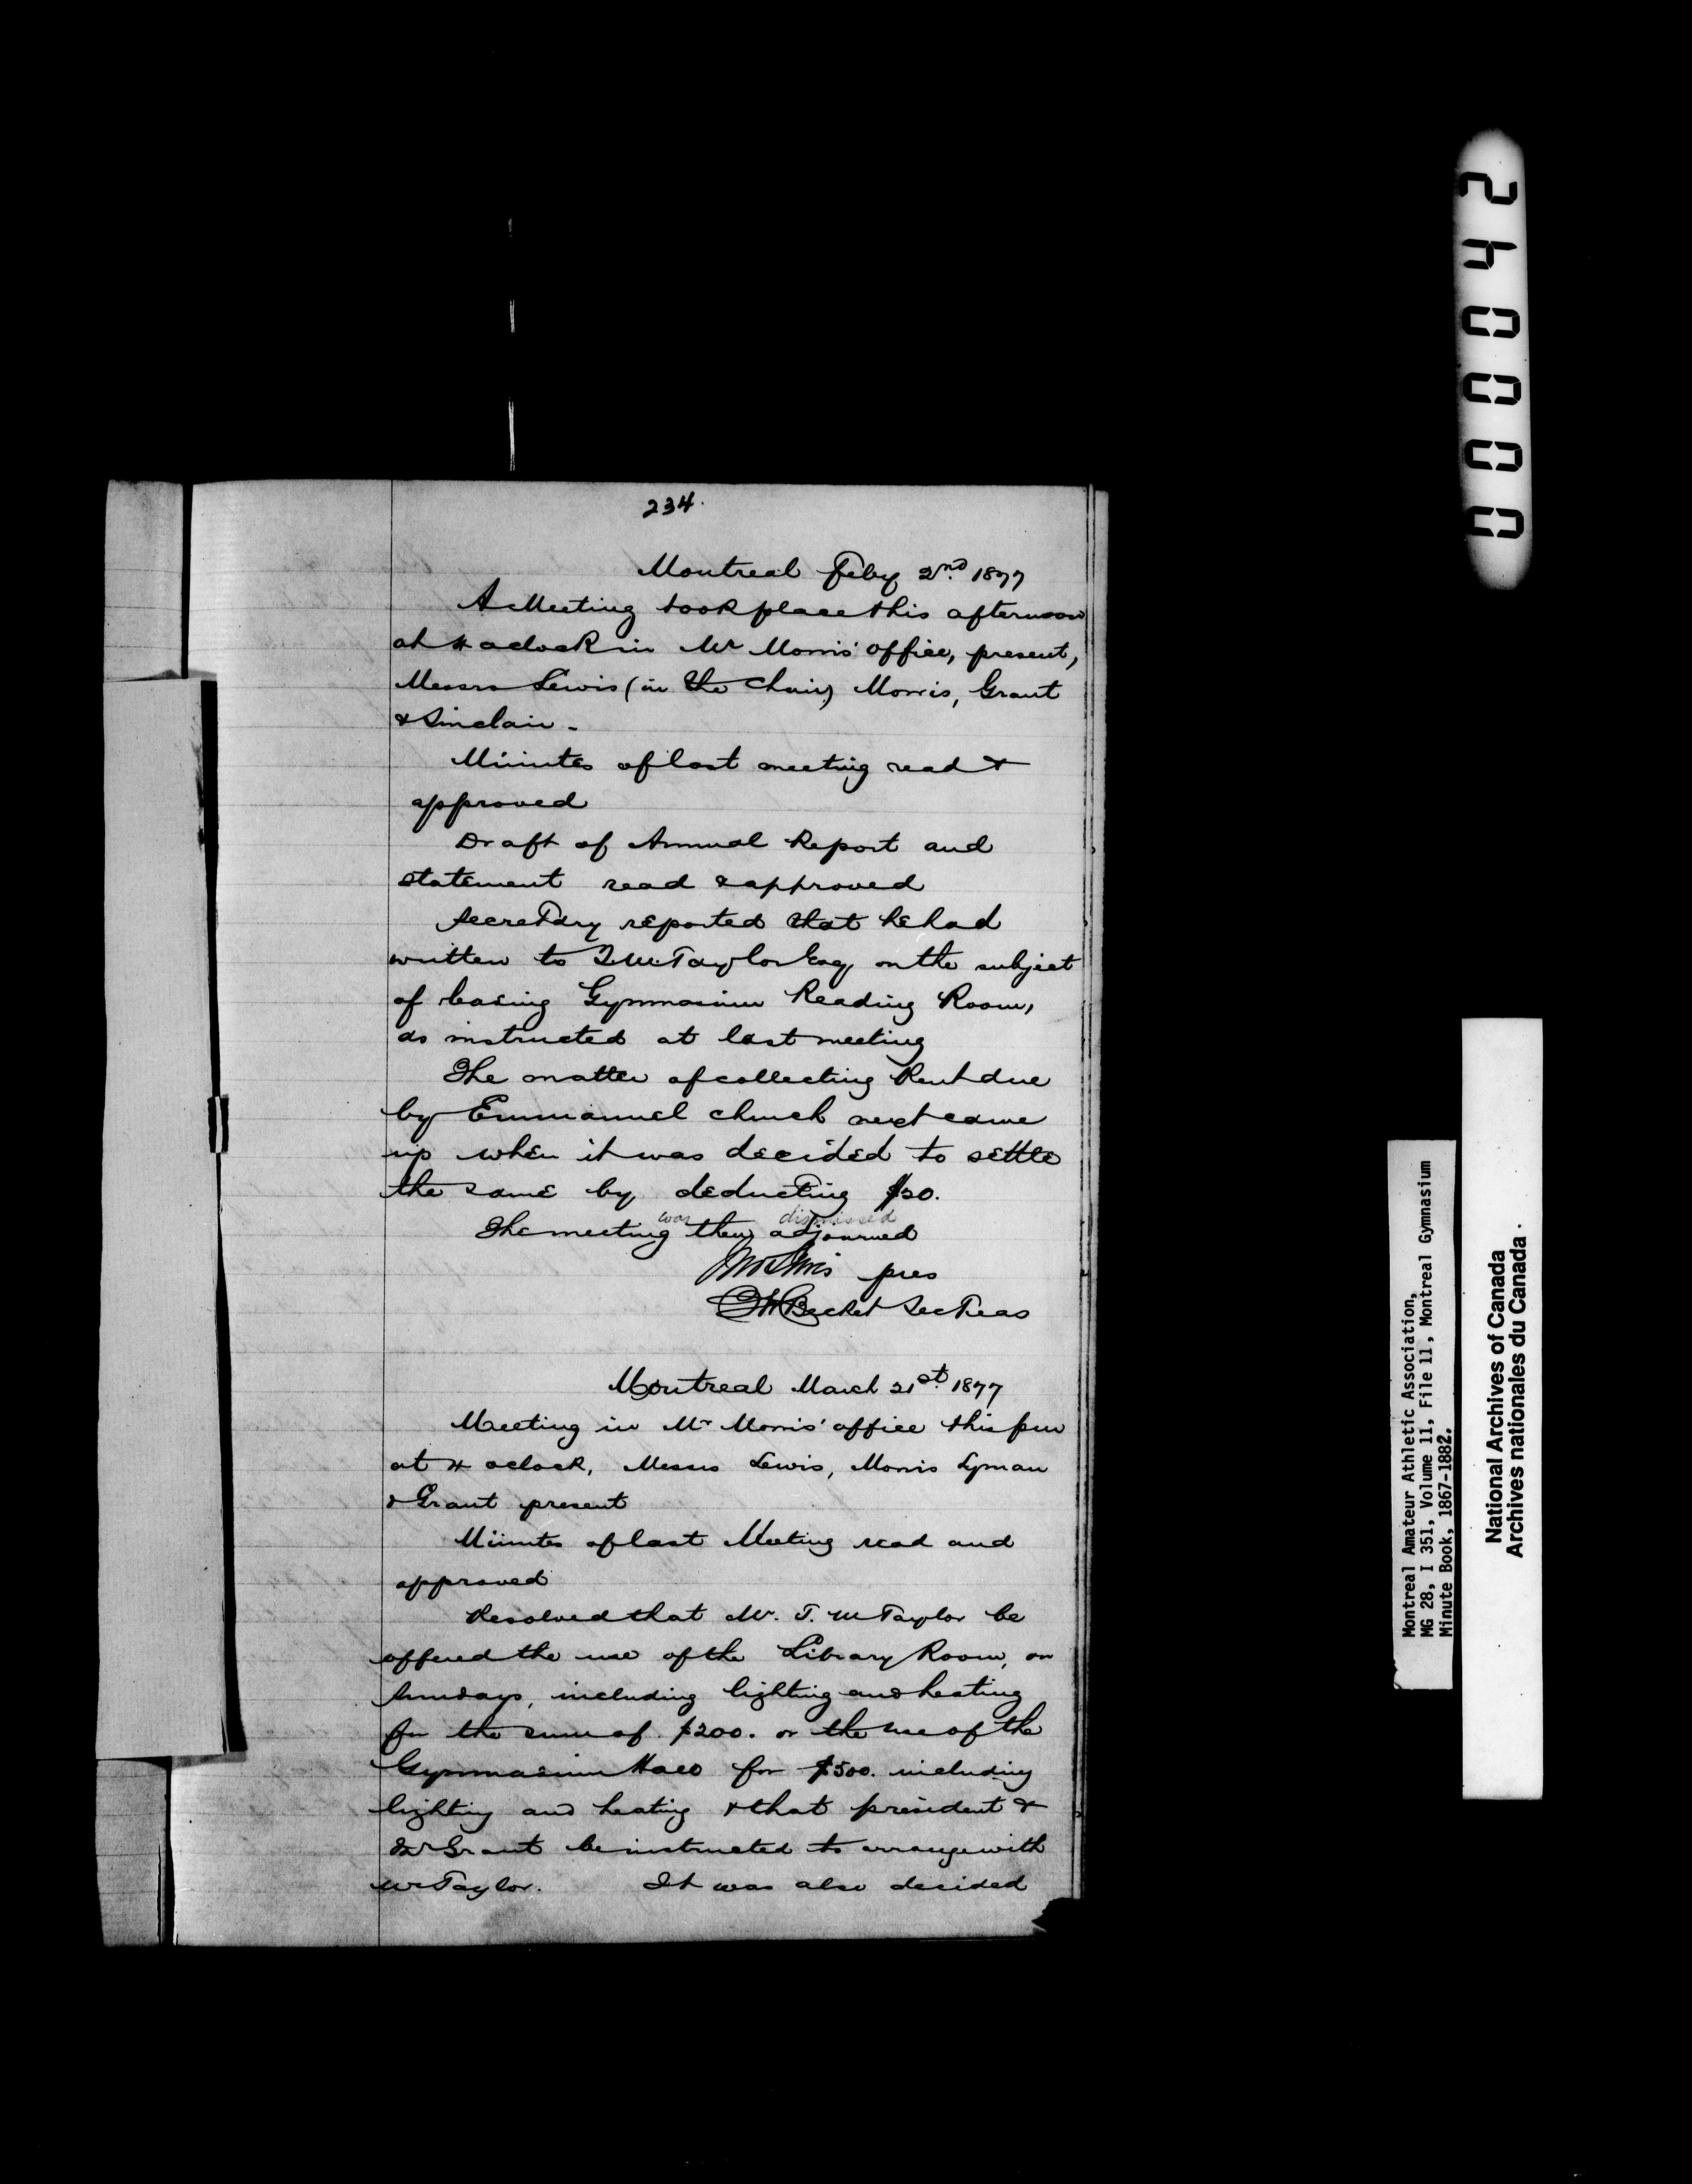 234.
Montreal Feby 2nd. 1877
A Meeting took place this afternoon
at 4 oclock in Mr Morris' office, present,
Messrs Lewis (in the Chair) Morris, Grant
& Sinclair -
Minutes of last meeting read &
approved
Draft of Annual Report and
statement read & approved
Secretary reported that he had
written to T. M. Taylor Esq, on the subject
of leasing Gymnasium Reading Room,
as instructed at last meeting
The matter of collecting Rent due
by Emmanuel church next came
up when it was decided to settle
the same by deducting $20.
was dismissed
The meeting then adjourned
pres
Becket Sec Treas
Montreal March 21st. 1877
Meeting in Mr Morris' office this pm
at 4 oclock, Messrs Lewis, Morris Lyman
& Grant present
Minutes of last Meeting read and
approved
Resolved that Mr. T. M Taylor be
offered the use of the Library Room, on
Sundays, including lighting and heating
for the sum of $200. or the use of the
Gymnasium Hall for $500. including
lighting and heating & that president &
Mr Grant be instructed to arrange with
Mr Taylor. It was also decided
000042
Montreal Amateur Athletic Association,
MG 28, I 351, Volume 11, File 11, Montreal Gymnasium
Minute Book, 1867-1882.
National Archives of Canada
Archives nationales du Canada.